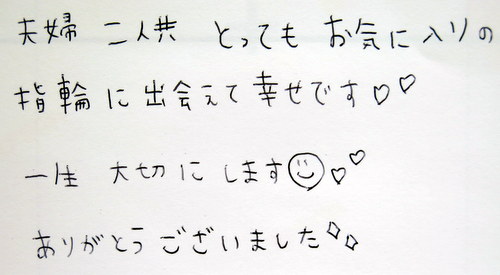 夫婦 二人共 とっても お気に入りの
指輪 に 出会えて 幸せです♡♡
一生 大切に します☺♡♡
ありがとう ございました✧✧